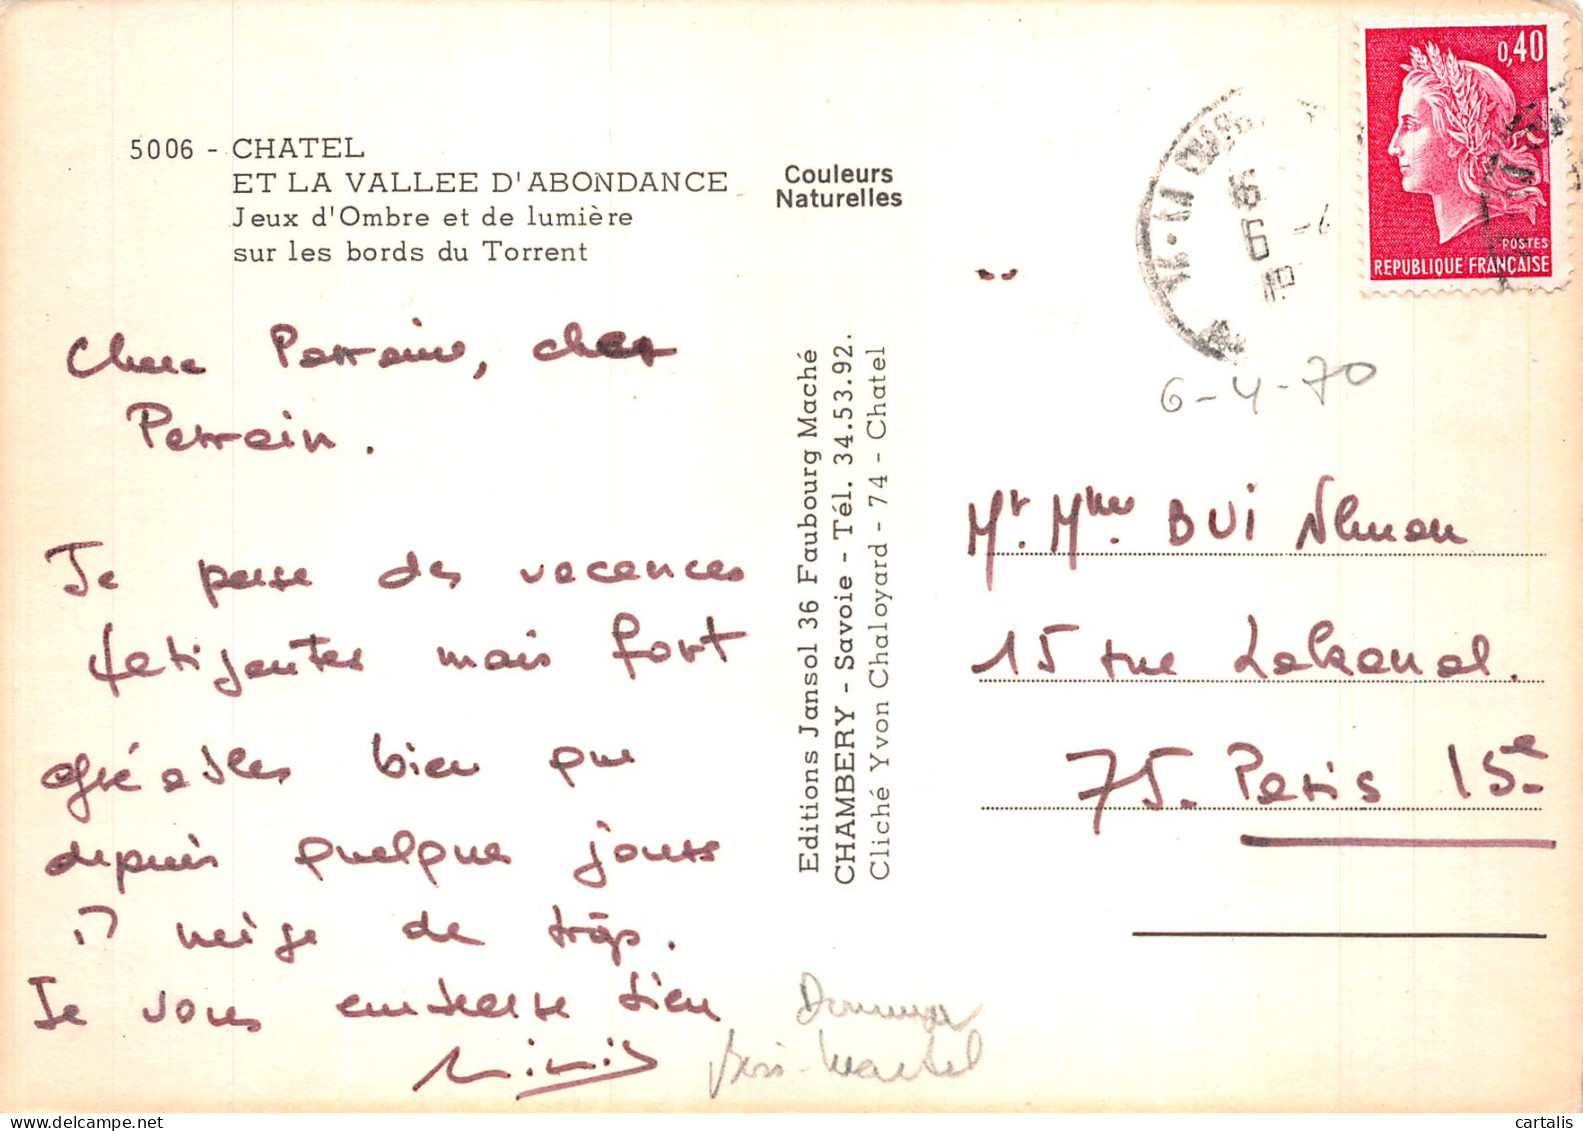 5006 - CHATEL
ET LA VALLEE D'ABONDANCE
Jeux d'Ombre et de lumière
sur les bords du Torrent
Couleurs
Naturelles
0,40
POSTES
REPUBLIQUE FRANÇAISE
6-4-70
Chere Parraine, cher
Parrain.
Je passe des vacances
fatigantes mais fort
agréables bien que
depuis quelque jours
il neige de trop.
Je vous embrasse bien
Editions Jansol 36 Faubourg Maché
CHAMBERY - Savoie - Tél. 34.53.92.
Cliché Yvon Chaloyard - 74 - Chatel
Mr. Mme BUI
15 rue Lakanal.
75. Paris 15e
cartalis